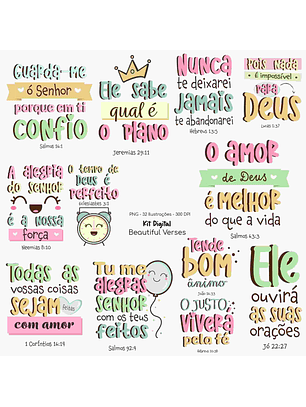 Guarda-me
ó Senhor
porque em ti
CONFIO
Salmos 16:1
Ele sabe
qual é
O PLANO
Jeremias 29:11
NUNCA
te deixarei
JAMAIS
te abandonarei
Hebreus 13:5
Pois nada
é impossível
para
DEUS
Lucas 1:37
A alegria
do senhor
é a nossa
força
Neemias 8:10
O tempo de
DEUS é
perfeito
Eclesiastes 3:1
PNG - 32 Ilustrações - 300 DPI
Kit Digital
Beautiful Verses
O AMOR
de Deus
É MELHOR
do que a vida
Salmos 63:3
Todas as
vossas coisas
SEJAM
feitas
com amor
1 Coríntios 16:14
Tu me
alegras
SENHOR
com os teus
FEITOS
Salmos 92:4
Tende
BOM
ânimo
João 16:33
O JUSTO
VIVERÁ
pela fé
Ele
ouvirá
as suas
orações
Jó 22:27